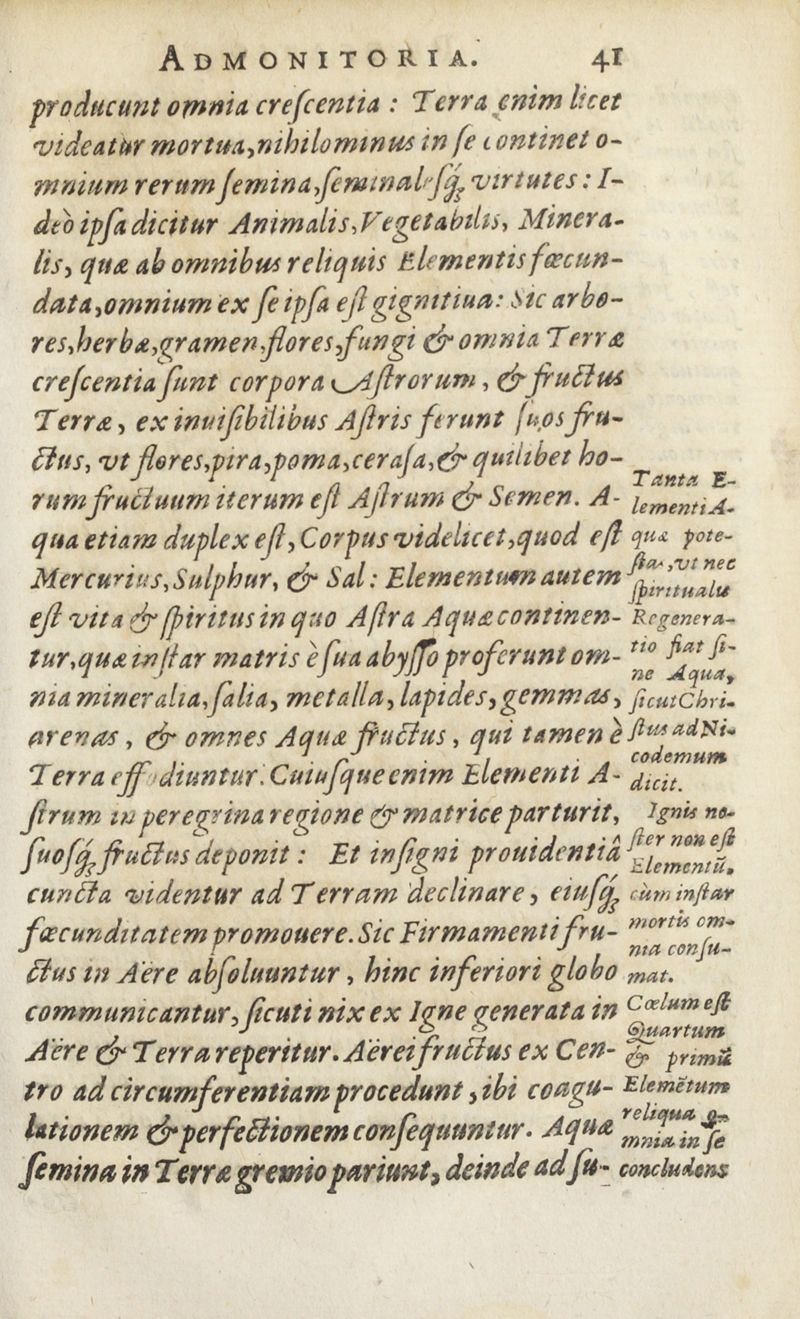 ADMONITORIA. 41
producunt omnia creſcentia : Terra enim licet
videatur mortua, nihilominus in ſe continet o-
mnium rerum ſemina, ſeminaleſq́; virtutes : I-
deò ipſa dicitur Animalis, Vegetabilis, Minera-
lis, quæ ab omnibus reliquis Elementis fœcun-
data, omnium ex ſe ipſa eſt gignitiua: Sic arbo-
res, herbæ, gramen, flores, fungi & omnia Terræ
creſcentia ſunt corpora Aſtrorum, & fructus
Terræ, ex inuiſibilibus Aſtris ferunt ſuos fru-
ctus, vt flores, pira, poma, ceraſa, & quilibet ho-
rum fructuum iterum eſt Aſtrum & Semen. A-
qua etiam duplex eſt, Corpus videlicet, quod eſt
Mercurius, Sulphur, & Sal : Elementum autem
eſt vita & ſpiritus in quo Aſtra Aquæ continen-
tur, quæ inſtar matris è ſua abyſſo proferunt om-
nia mineralia, ſalia, metalla, lapides, gemmas,
arenas, & omnes Aquæ fructus, qui tamen è
Terra effodiuntur. Cuiuſque enim Elementi A-
ſtrum in peregrina regione & matrice parturit,
ſuoſq́; fructus deponit : Et inſigni prouidentiâ
cuncta videntur ad Terram declinare, eiuſq́;
fœcunditatem promouere. Sic Firmamenti fru-
ctus in Aëre abſoluuntur, hinc inferiori globo
communicantur, ſicuti nix ex Igne generata in
Aëre & Terra reperitur. Aërei fructus ex Cen-
tro ad circumferentiam procedunt, ibi coagu-
lationem & perfectionem conſequuntur. Aquæ
ſemina in Terræ gremio pariunt, deinde ad ſu-
Tanta E-
lementi A-
quæ pote-
ſtas, vt nec
ſpiritualis
Regenera-
tio fiat ſi-
ne Aqua,
ſicut Chri-
ſtus ad Ni-
codemum
dicit.
Ignis no-
ſter non eſt
Elementū,
cùm inſtar
mortis om-
nia conſu-
mat.
Cœlum eſt
Quartum
& primū
Elemētum
reliqua o-
mnia in ſe
concludens